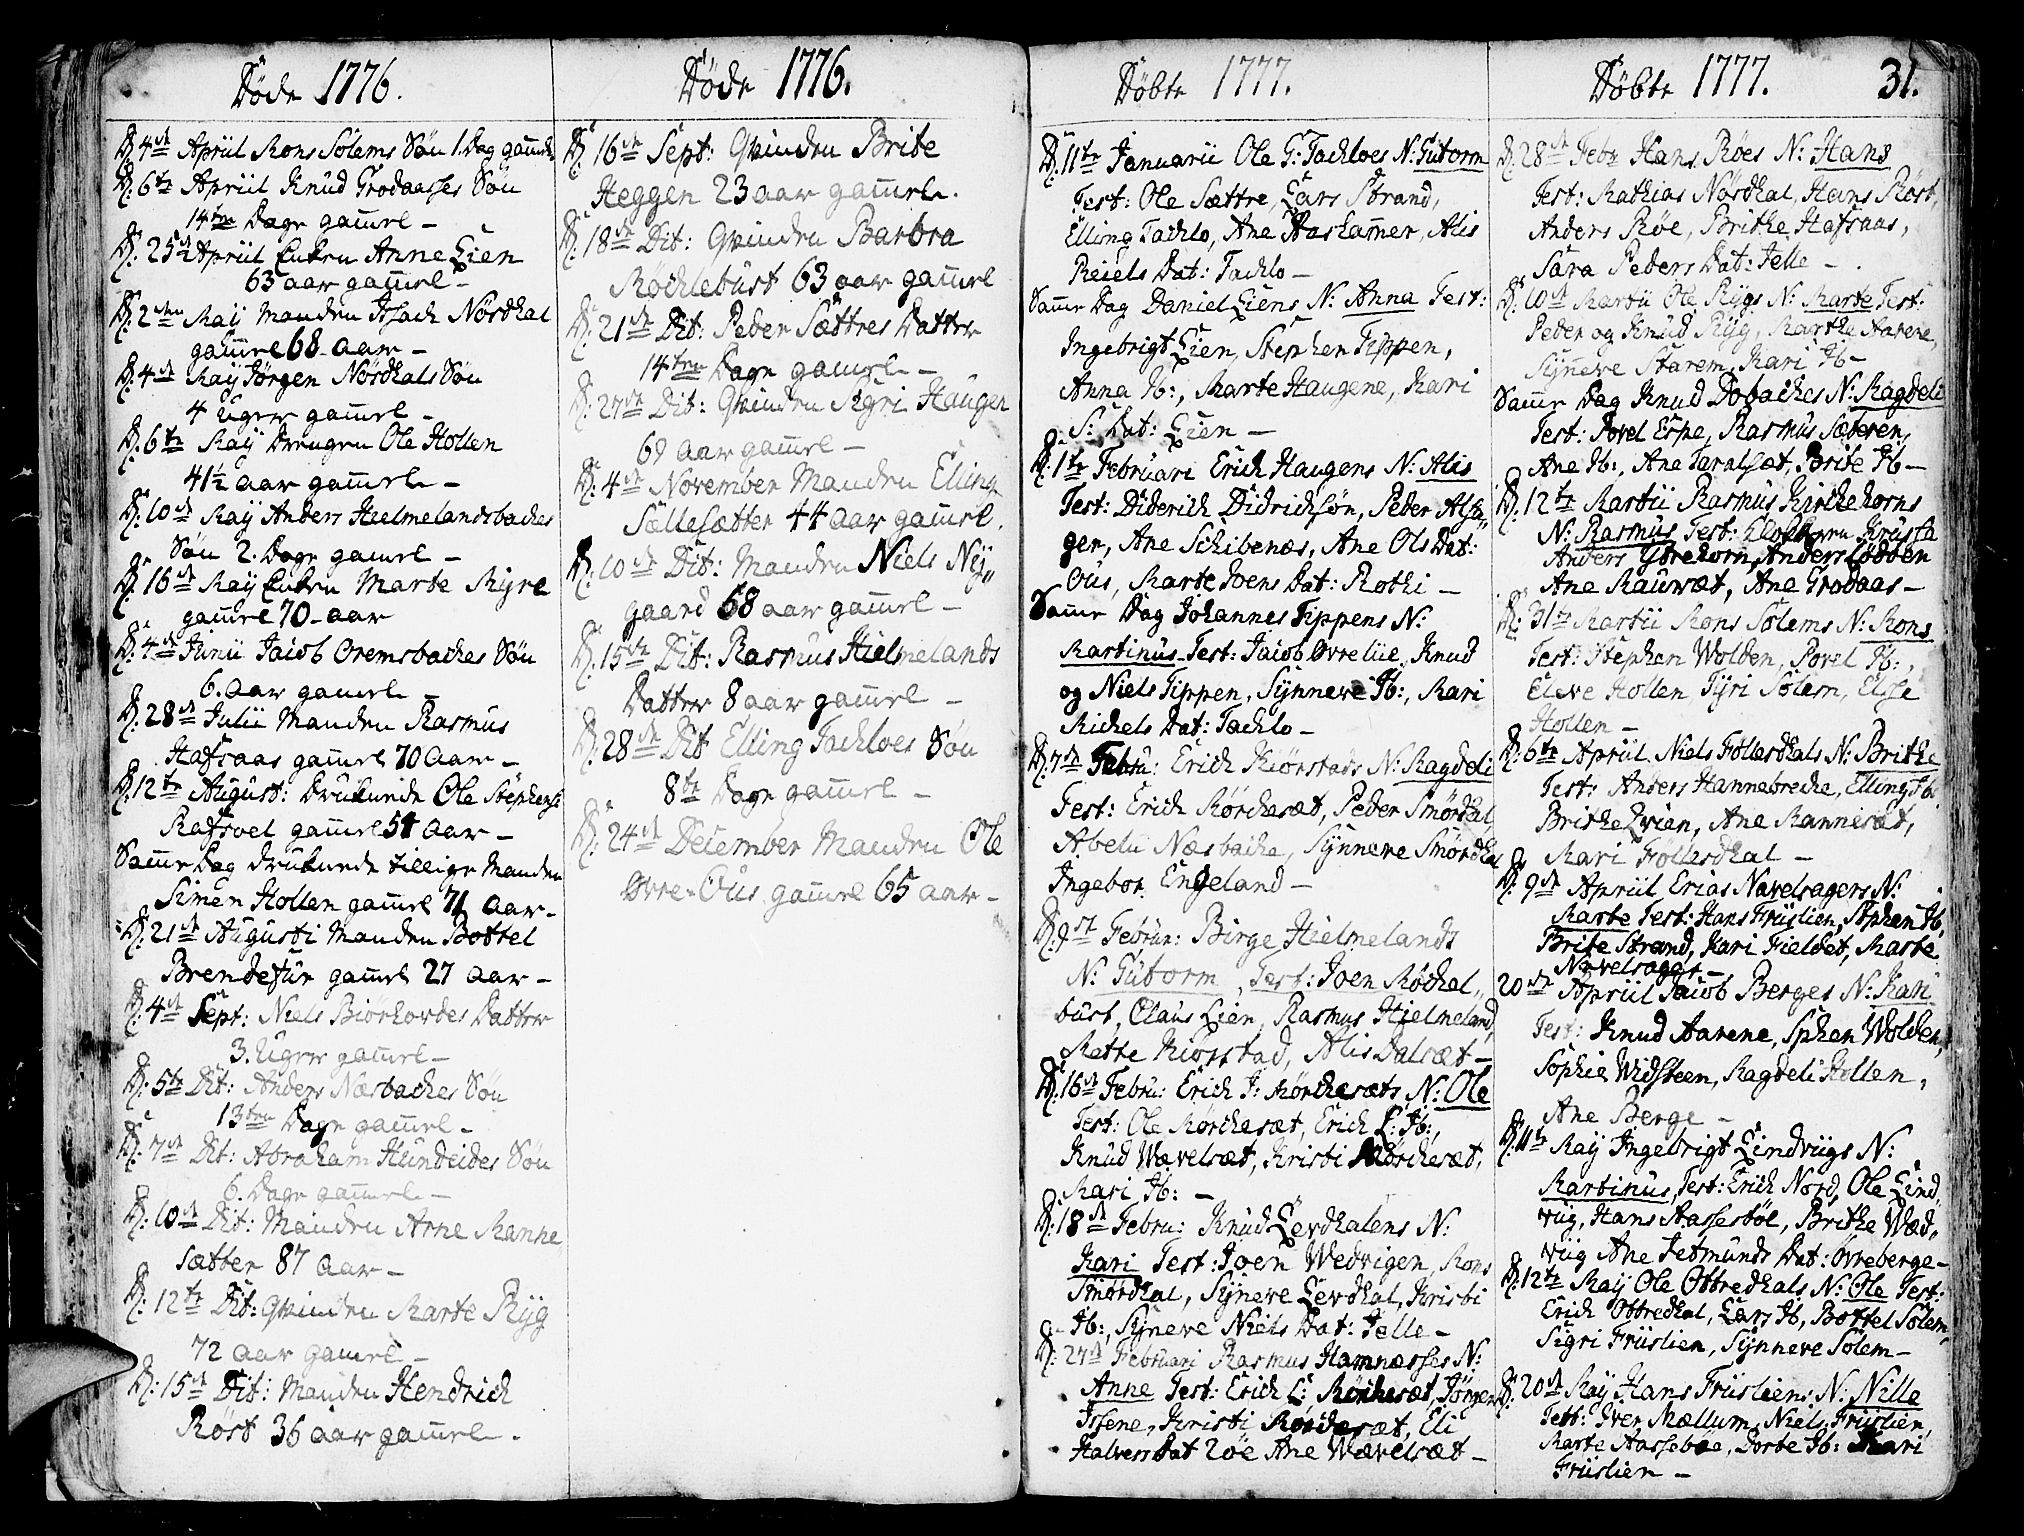 Døde 1776.
D: 4de Apriil Mons Solems Søn 1. Dag gaml
D: 6te Apriil Knud Grodaasses Søn
14ten Dage gamel –
D: 25de Apriil Enken Anne Lien
63 aar gamel –
D: 2den Maij Manden Issach Nørdhal
gamel 68 aar –
D: 4de Maij Jørgen Nørdhals Søn
4 Uger gamel –
D: 6te Maij Drengen Ole Hollen
41½ aar gamel –
D: 10de Maij Anders Hielmelandsbaches
Søn 2. Dage gamel –
D: 16de Maij Enken Marte Myre
gamel 70 aar
D: 4de Junii Jacob Oremsbaches Søn
6. aar gamel –
D: 28de Julii Manden Rasmus
Hafsaas gamel 70 Aar –
D: 12te August: Druknede Ole Stephens:
Rafsvel gamel 54 Aar –
Same Dag druknede tillige Manden
Simen Hollen gamel 71 Aar –
D: 21de Augusti Manden Bottel
Brendefur gamel 27 Aar –
D: 4de Sept: Niels Biørhovdes Datter
3. Uger gamel –
D: 5te Dit: Anders Næsbaches Søn
13ten Dage gamel –
D: 7de Dit: Abraham Hundeides Søn
6. Dage gamel –
D: 10de Dit: Manden Arne Manne
Sætter 87 Aar –
D: 12te Dit: Qvinden Marte Ryg
72 aar gamel –
D: 15de Dit: Manden Hendrich
Røst 36 aar gamel.
Døde 1776.
D: 16de Sept: Qvinden Brite
Heggen 23 aar gamel.
D: 18de Dit: Qvinden Barbra
Rochlebust 63 aar gamel
D: 21de Dit: Peder Sættres Datter
14ten Dage gamel –
D: 27de Dit: Qvinden Sigri Haugen
60 Aar gamel –
D: 4de November Manden Elling
Sællesætter 44 Aar gamel.
D: 10de Dit: Manden Niels Nij„
gaard 68 aar gamel –
D: 15de Dit: Rasmus Hielmelands
Datter 8 aar gamel –
D: 28de Dit Elling Tachloes Søn
8te Dage gamel –
D: 24de December Manden Ole
Øvre-Ous gamel 65 aar –
Døbte 1777.
D: 11te Januarii Ole G: Tachloes N: Gutorm
Test: Ole Sættre, Lars Strand,
Elling Tachlo, Ane Aaskamer, Alis
Reiels Dat: Tachlo –
Same Dag Daniel Liens N: Anna Test:
Ingebrigt Lien, Stephen Tippen,
Anna Jb:, Marte Haugene, Kari
S: Dat: Lien –
D: 1te Februari Erich Haugens N: Alis
Test: Diderich Didrichsøn, Peder Alsa„
ger, Ane Schibenæs, Ane Ols Dat:
Ous, Marte Joens Dat: Rothi –
Same Dag Johannes Tippens N:
Martinus Test: Jacob Øvrelie, Knud
og Niels Tippen, Synneve Jb:, Mari
Michels Dat: Tachlo –
D: 7de Febru: Erich Kiørstads N: Magdeli
Test: Erich Mørchesæt, Peder Smørdhal,
Abelu Næsbache, Synneve Smørdhal
Ingebor. Engeland –
D: 9de Februr: Birge Hielmelands
N: Gutorm, Test: Joen Røchel„
bust, Claus Lien, Rasmus Hielmeland,
Mette Kiørstad, Alis Dalsæt –
D: 16de Febru: Erich J: Mørchesæts N: Ole
Test: Ole Mørchesæt, Erich L: Jb:,
Knud Wævelsæt, Kristi Mørchesæt,
Mari Jb: –
D: 18de Febru: Knud Levdhalens N:
Kari Test: Joen Wedvigen, Mons
Smørdhal, Synneve Levdhal, Kristi
Jb:, Syneve Niels Dat: Jelle –
D: 27de Februari Rasmus Hamnæsses N:
Anne Test: Erich L: Mørchesæt, Jørgen
Issene, Kristi Mørchesæt, Eli
Halvers Dat Løe Ane Wævelsæt –
Døbte 1777. 31.
D: 28de Febr Hans Røes N: Hans
Test: Mathias Nørdhal, Hans Røst,
Anders Røe, Brithe Hafsaas,
Sara Peders Dat: Jelle –
D: 10de Martii Ole Rygs N: Marte Test:
Peder og Knud Ryg, Marthe Aarene,
Synneve Starem, Kari Jb –
Same Dag Knud Dobaches N: Magdeli
Test: Povel Espe, Rasmus Sæteren,
Ane Jb:, Ane Taralsæt, Brite Jb –
D: 12te Martii Rasmus Kirchehorns
N: Rasmus Test: Klocheren Krusta
Anders Ytrehorn, Anders Lødøen
Ane Mauwæt, Ane Grodaas –
D: 31te Martii Mons Solems N: Mons
Test: Stephen Wolden, Povel Jb:,
Eleve Hollen Tyri Solem, Elsse
Hollen –
D: 6te Apriil Niels Føllesdhals N: Brithe
Test: Anders Hannebreche, Elling Jb:
Brithe Qvien, Ane Mannesæt,
Mari Føllesdhal –
D: 9de Apriil Erias Navelsagers N:
Marte Test: Hans Friislien, Stphen Jb,
Brite Strand, Kari Fieldet, Marte
Navelsager –
20de Apriil Jacob Berges N: Kari
Test: Knud Aarene, Sphen Wolden,
Sophie Widsteen, Magdeli Hollen,
Ane Berge –
D: 11te Maij Ingebrigt Lindviigs N:
Martinus, Test: Erich Nord, Ole Lind„
viig, Hans Aassestøl, Brithe Wæd„
viig Ane Jetmunds Dat: Øvreberge –
D: 12te Maij Ole Ottredhals N: Ole Test:
Erich Ottredhal, Lars Jb, Bottel Solem,
Sigri Friislien, Synneve Solem –
D: 20de Maij Hans Friisliens N: Nille
Test: Iver Mællum, Niels Friislien,
Marte Aassebøe, Dorte Jb: Mari
Friislien –